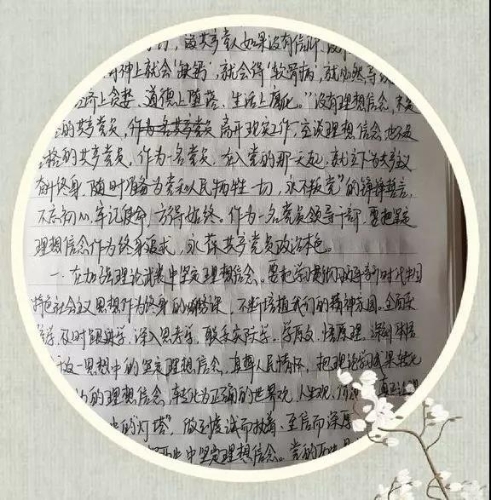 该共产党人如果没有信仰、没有
神上就会"缺钙",就会得"软骨病",就必然导致
济上贪婪、道德上堕落、生活上腐化。"没有理想信念,不是
的共产党员,离开现实工作,空谈理想信念也不是
格的共产党员,作为一名党员,在入党的那天起,我立下为共产主义
奋斗终身,随时准备为党和人民牺牲一切,永不叛党"的铮铮誓言,
不忘初心,牢记使命,方得始终。作为一名党员领导干部,要把坚定
理想信念作为终身追求,永葆共产党员政治本色。
一、在加强理论武装中坚定理想信念。要把学习贯彻习近平新时代中国
特色社会主义思想作为终身的必修课,不断培植我们的精神家园,全面系
学,及时跟进学,深入思考学,联系实际学,学原文,悟原理,深刻体悟
这一思想中的坚定理想信念,真挚人民情怀,把理论学习成果转化
的理想信念,转化为正确的世界观,人生观,价值观,真正让理
的灯塔",做到虔诚而执着、至信而深厚
中坚定理想信念。党的历史